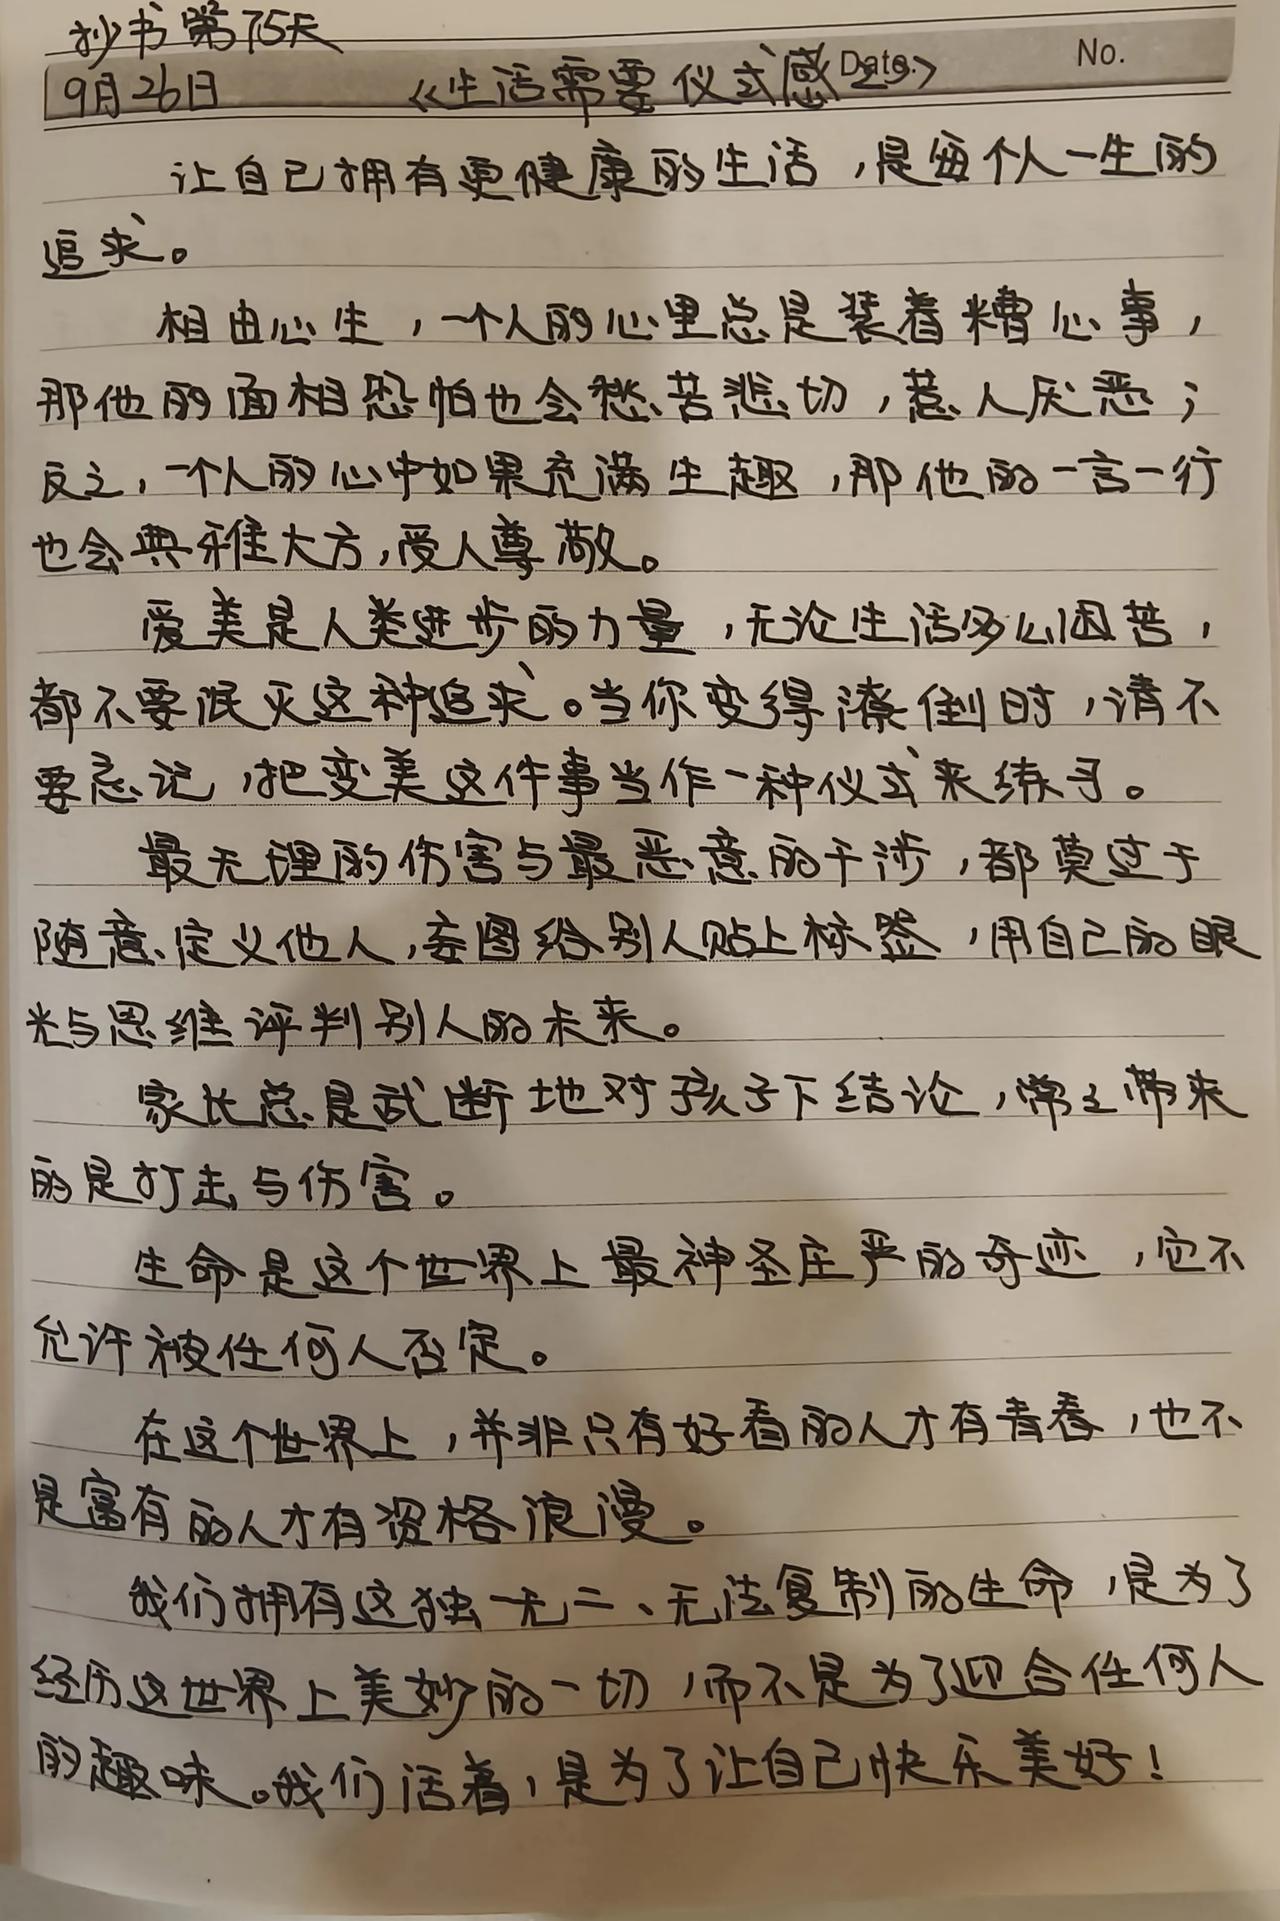 抄书第75天
9月26日 《生活需要仪式感》 Date. No.
让自己拥有更健康的生活,是每个人一生的
追求。
相由心生,一个人的心里总是装着糟心事,
那他的面相恐怕也会愁苦悲切,惹人厌恶;
反之,一个人的心中如果充满生趣,那他的一言一行
也会典雅大方,受人尊敬。
爱美是人类进步的力量,无论生活多么困苦,
都不要泯灭这种追求。当你变得潦倒时,请不
要忘记,把变美这件事当作一种仪式来练习。
最无理的伤害与最恶意的干涉,都莫过于
随意定义他人,妄图给别人贴上标签,用自己的眼
光与思维评判别人的未来。
家长总是武断地对孩子下结论,常々带来
的是打击与伤害。
生命是这个世界上最神圣庄严的奇迹,它不
允许被任何人否定。
在这个世界上,并非只有好看的人才有青春,也不
是富有的人才有资格浪漫。
我们拥有这独一无二、无法复制的生命,是为了
经历这世界上美妙的一切,而不是为了迎合任何人
的趣味。我们活着,是为了让自己快乐美好!